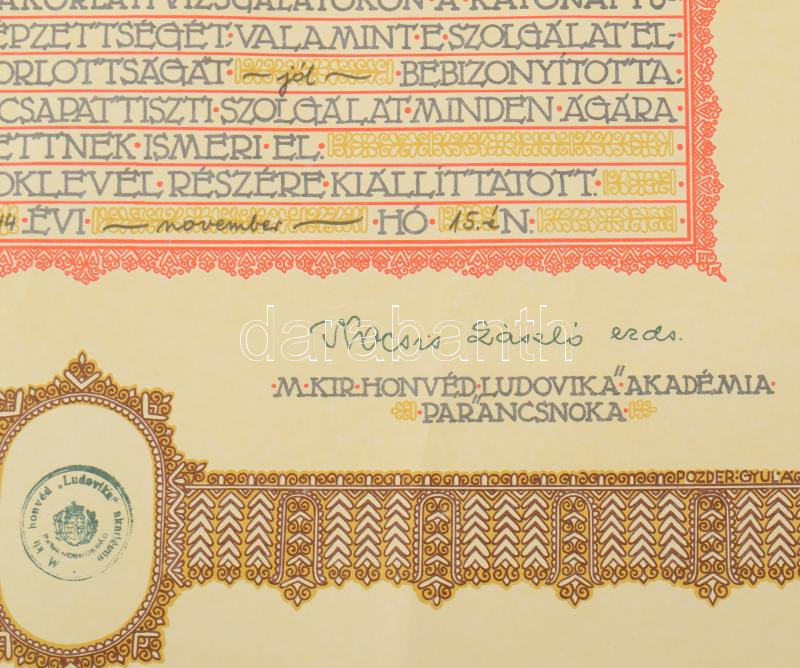 AKORLATI·VIZSGÁLATOKON·A·KATONAI·TU-
ÉPZETTSÉGÉT·VALAMINT·E·SZOLGÁLAT·EL-
ORLOTTSÁGÁT· jól ·BEBIZONYÍTOTTA;
CSAPATTISZTI·SZOLGÁLAT·MINDEN·ÁGÁRA
ETTNEK·ISMERI·EL.
OKLEVÉL·RÉSZÉRE·KIÁLLÍTTATOTT.
44·ÉVI· november ·HÓ· 15.-é N.
Kocsis László ezds.
·M·KIR·HONVÉD·LUDOVIKA"AKADÉMIA·
PARANCSNOKA·
POZDER·GYULA
M. kir. honvéd „Ludovika" akadémia
PARANCSNOKSÁG
darabanth